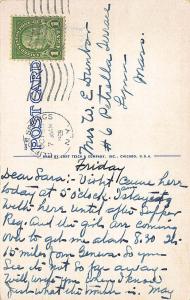 1
1
POST CARD
7 AM
N.Y.
Mrs W. E. Dunbar
#6 Petrella Terrace
Lynn
Mass.
MADE BY CURT TEICH & COMPANY, INC., CHICAGO, U.S.A.
Friday
Dear Sara:- Violet came here
today at 5 o'clock. I stayed
with her until after supper
Reg. and the girls are coming
over to get me about 8.30 It
15 miles from Geneva. So you
see its not so far away.
Will write you when I know
just what the is. May